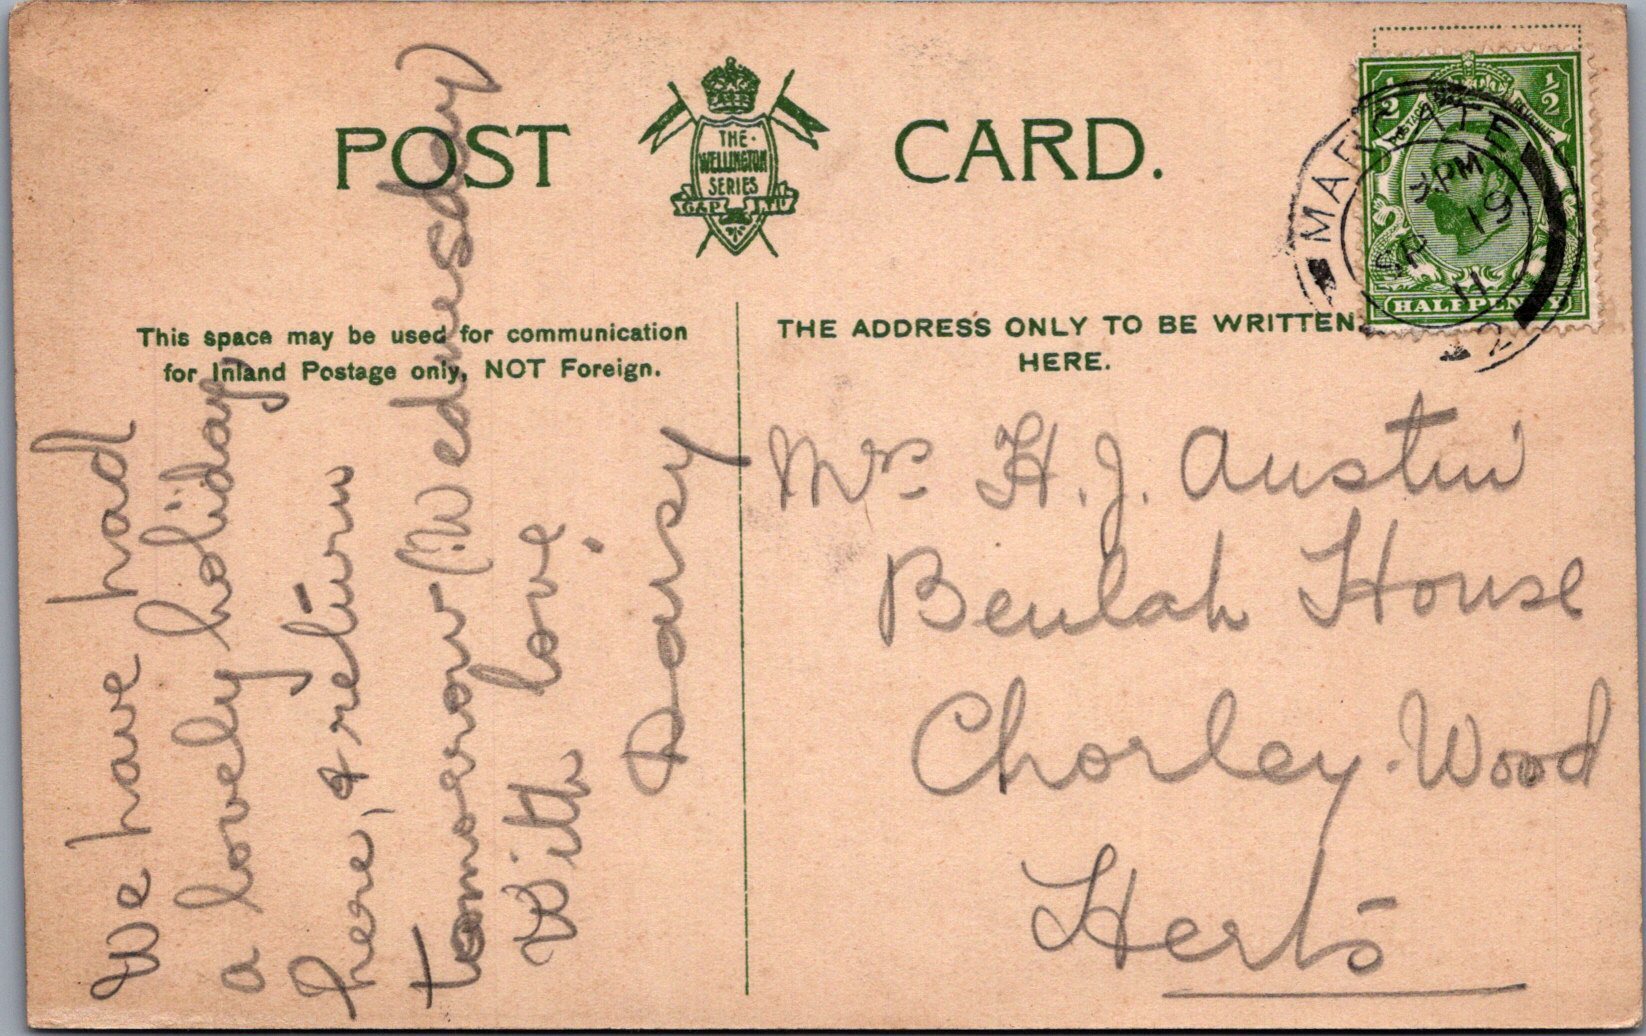 POST CARD.
THE
WELLINGTON
SERIES
G&P LTD
This space may be used for communication
for Inland Postage only, NOT Foreign.
THE ADDRESS ONLY TO BE WRITTEN
HERE.
We have had
a lovely holiday
here, & return
tomorrow (Wednesday)
With love,
Daisy
Mrs H. J. Austin
Beulah House
Chorley Wood
Herts
½ ½
POSTAGE REVENUE
HALFPENNY
MARGATE
PM
SP 19
11
2